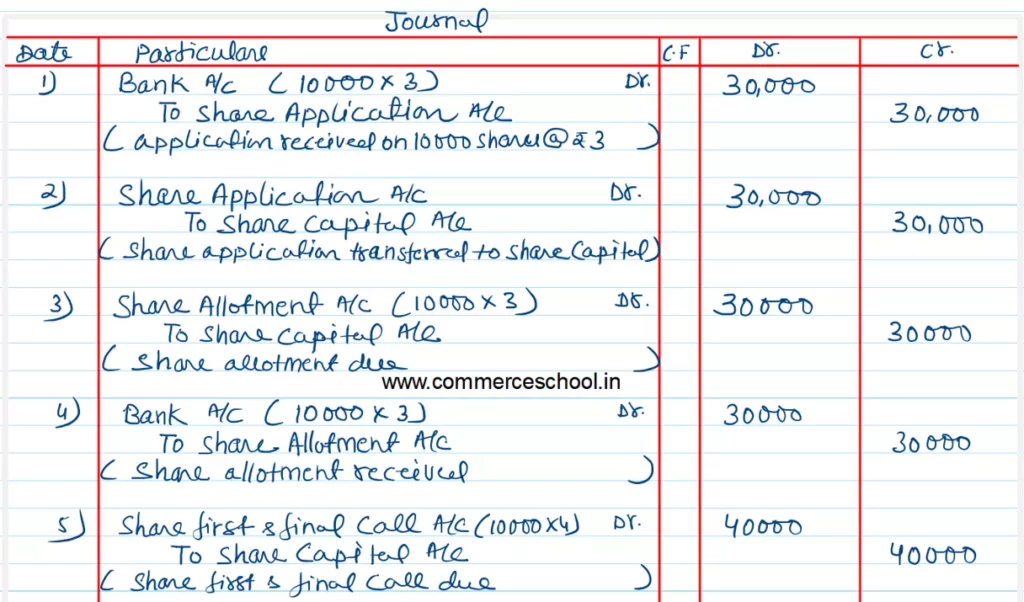 Journal
Date Particulare C.F Dr. Cr.
1) Bank A/c (10000 x 3) Dr. 30,000
To Share Application A/c 30,000
(application received on 10000 shares @ ₹3)
2) Share Application A/c Dr. 30,000
To Share Capital A/c 30,000
(Share application transferred to share Capital)
3) Share Allotment A/c (10000 x 3) Dr. 30000
To Share Capital A/c 30000
(Share allotment due)
www.commerceschool.in
4) Bank A/c (10000 x 3) Dr. 30000
To Share Allotment A/c 30000
(Share allotment received)
5) Share first & final Call A/c (10000x4) Dr. 40000
To Share Capital A/c 40000
(Share first & final Call due)